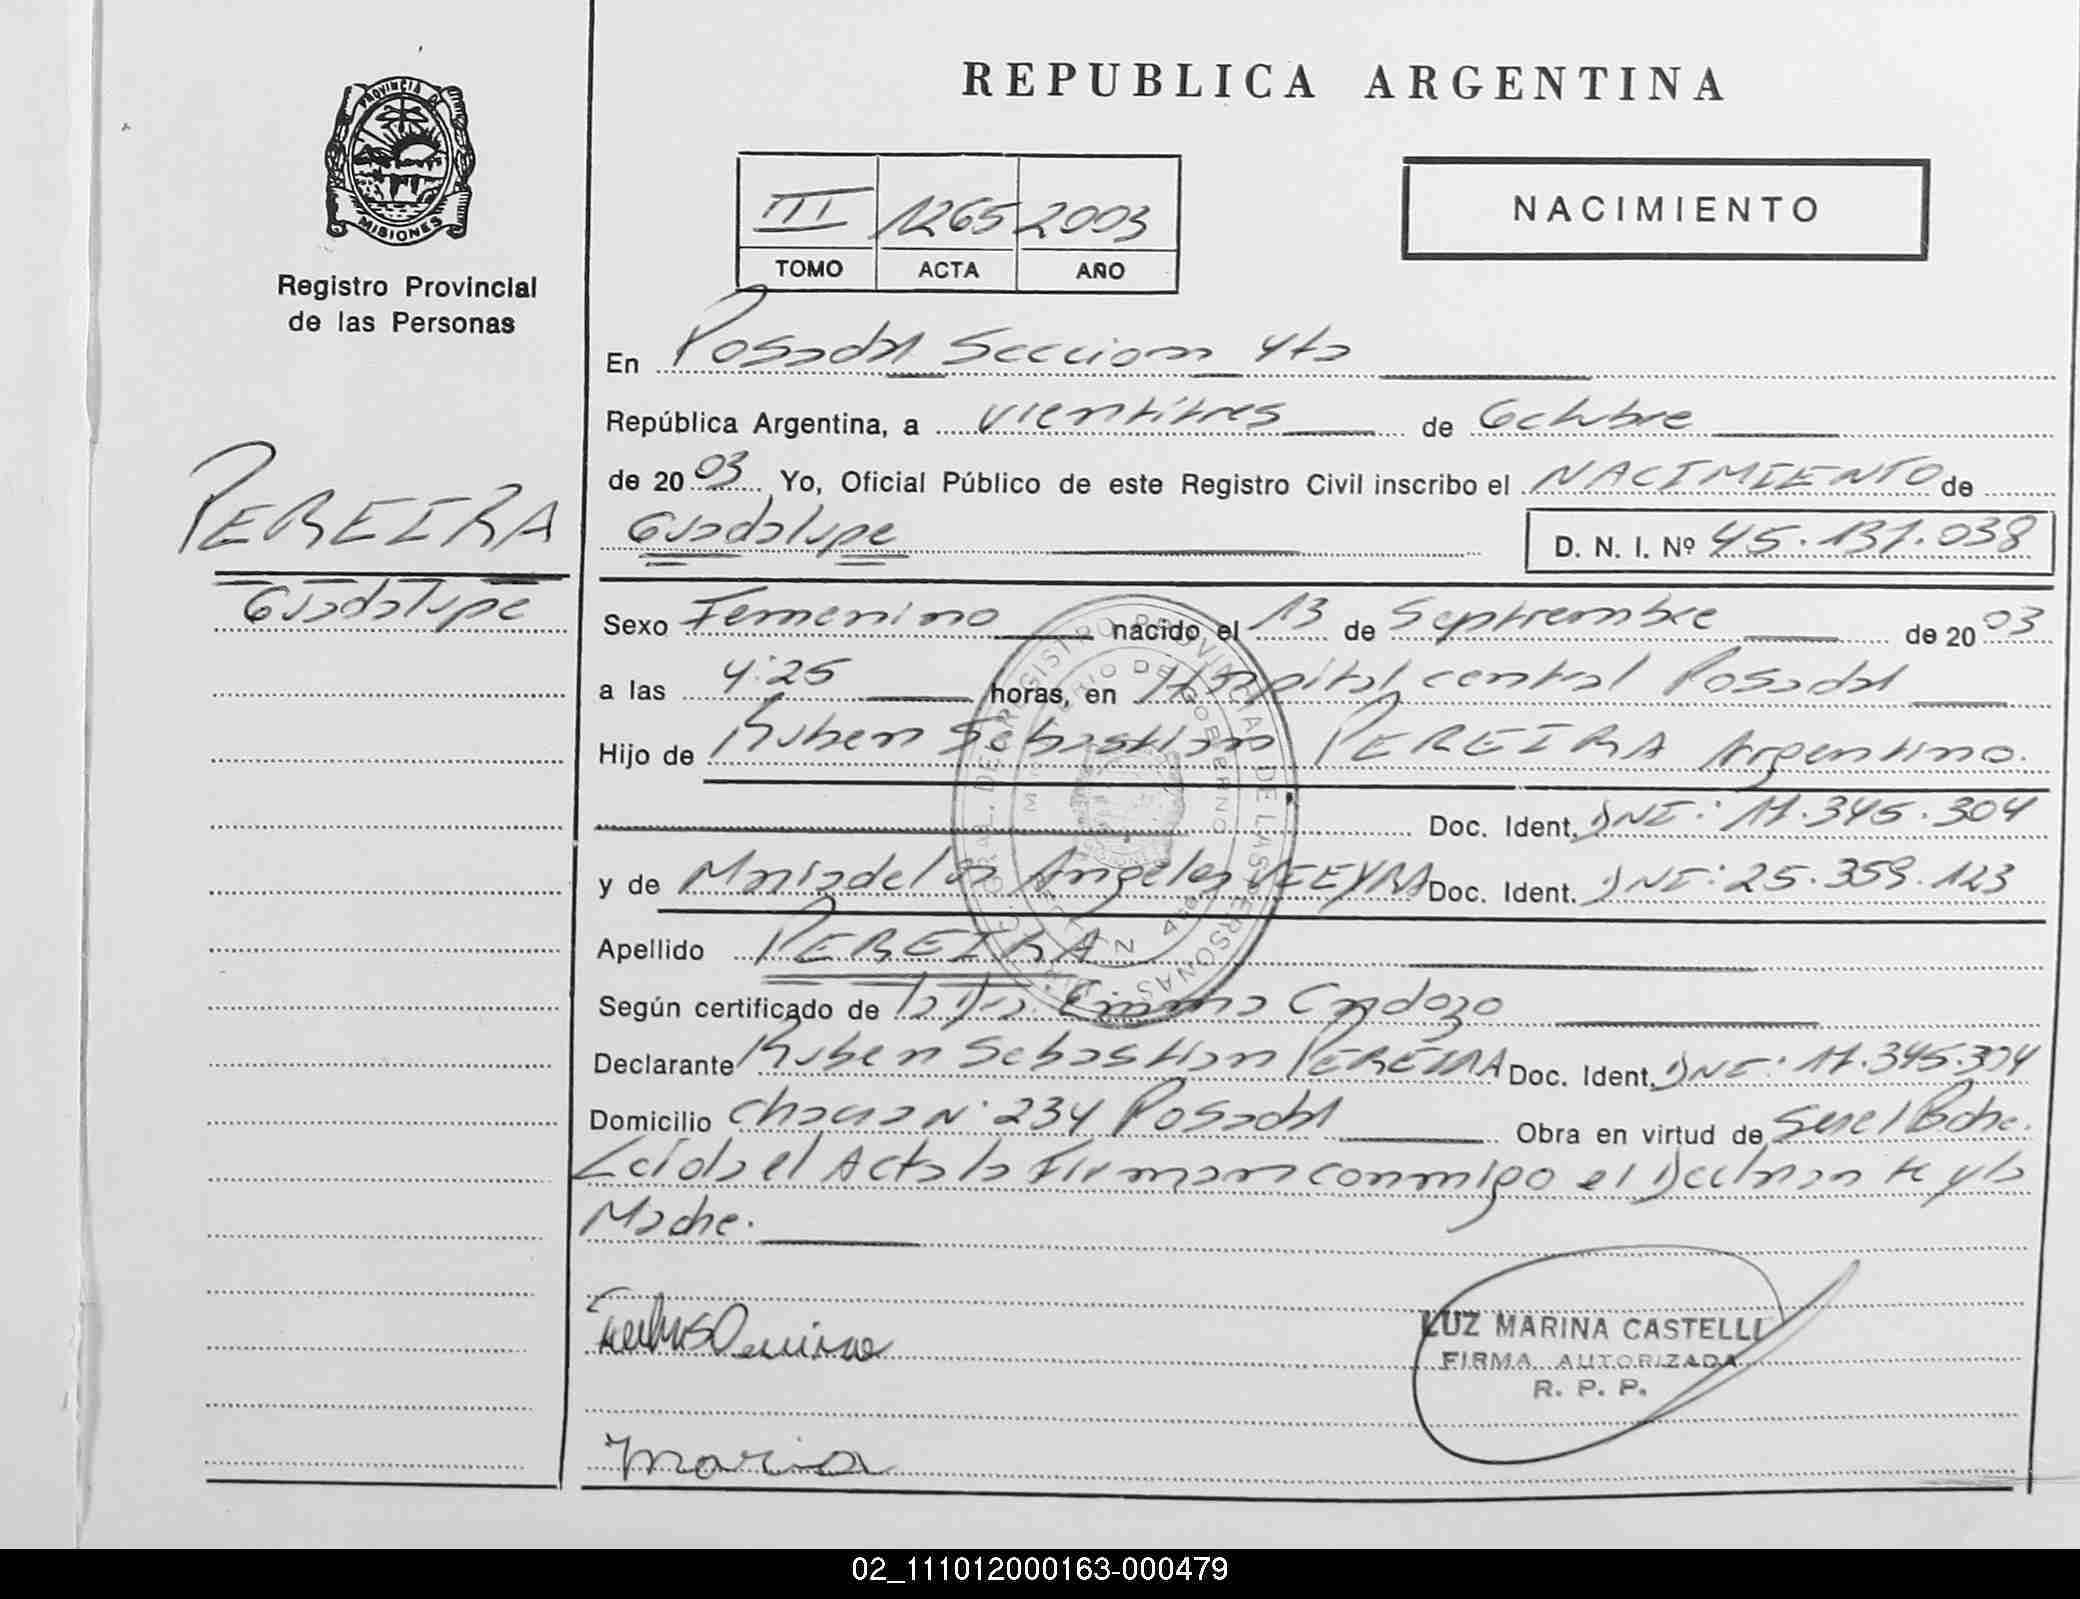 PROVINCIA DE
MISIONES
Registro Provincial
de las Personas
REPUBLICA ARGENTINA
III 1265 2003
TOMO ACTA AÑO
NACIMIENTO
En Posadas Seccion 4ta
República Argentina, a vientitres de Octubre
de 2003 Yo, Oficial Público de este Registro Civil inscribo el NACIMIENTO de
Guadalupe D. N. I. Nº 45.137.038
PEREIRA
Guadalupe
Sexo Femenino nacido el 13 de Septiembre de 2003
a las 4:25 horas, en Hospital central Posadas
Hijo de Ruben Sebastian PEREIRA Argentino.
Doc. Ident. DNI: 11.345.304
y de Maria de los Angeles Doc. Ident. DNI: 25.359.123
Apellido PEREIRA
Según certificado de la Dra. Emma Cardozo
Declarante Ruben Sebastian PEREIRA Doc. Ident. DNI: 11.345.304
Domicilio Chacra Nº 234 Posadas Obra en virtud de Ser el Padre.
Leida el Acta la Firman conmigo el Declarante y la
Madre.
LUZ MARINA CASTELLI
FIRMA AUTORIZADA
R. P. P.
Maria
02_111012000163-000479